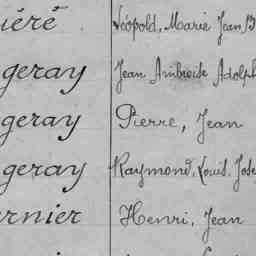 iéré Léopold, Marie Jean B
geray Jean Ambroise Adolph
geray Pierre, Jean
geray Raymond, Louis. Jose
rnier Henri, Jean